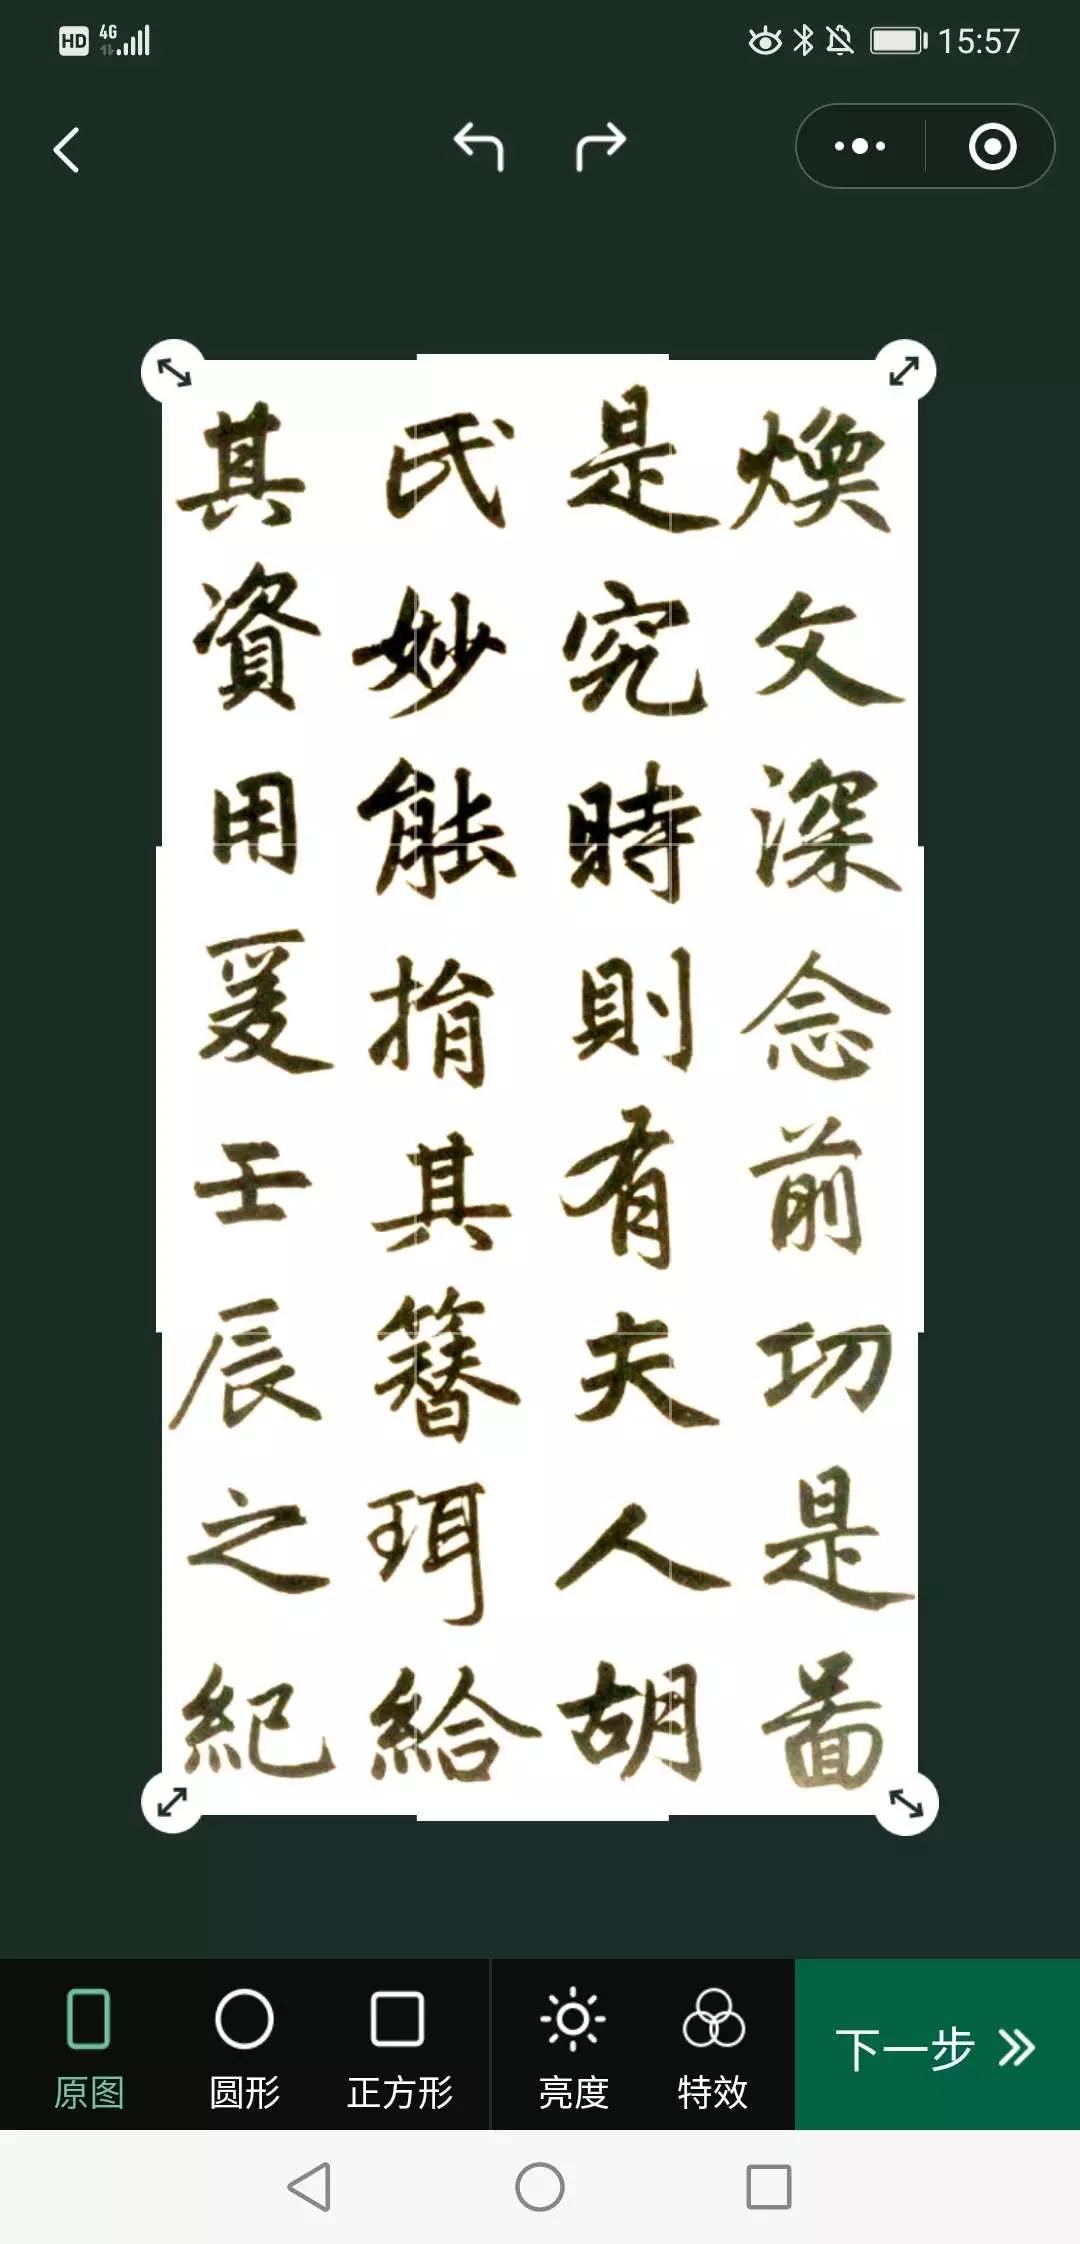 HD 4G 15:57
煥文深念前功是啚
是究時則有夫人胡
氏妙能捐其簮珥給
其資用爰壬辰之紀
原图 圆形 正方形 亮度 特效 下一步